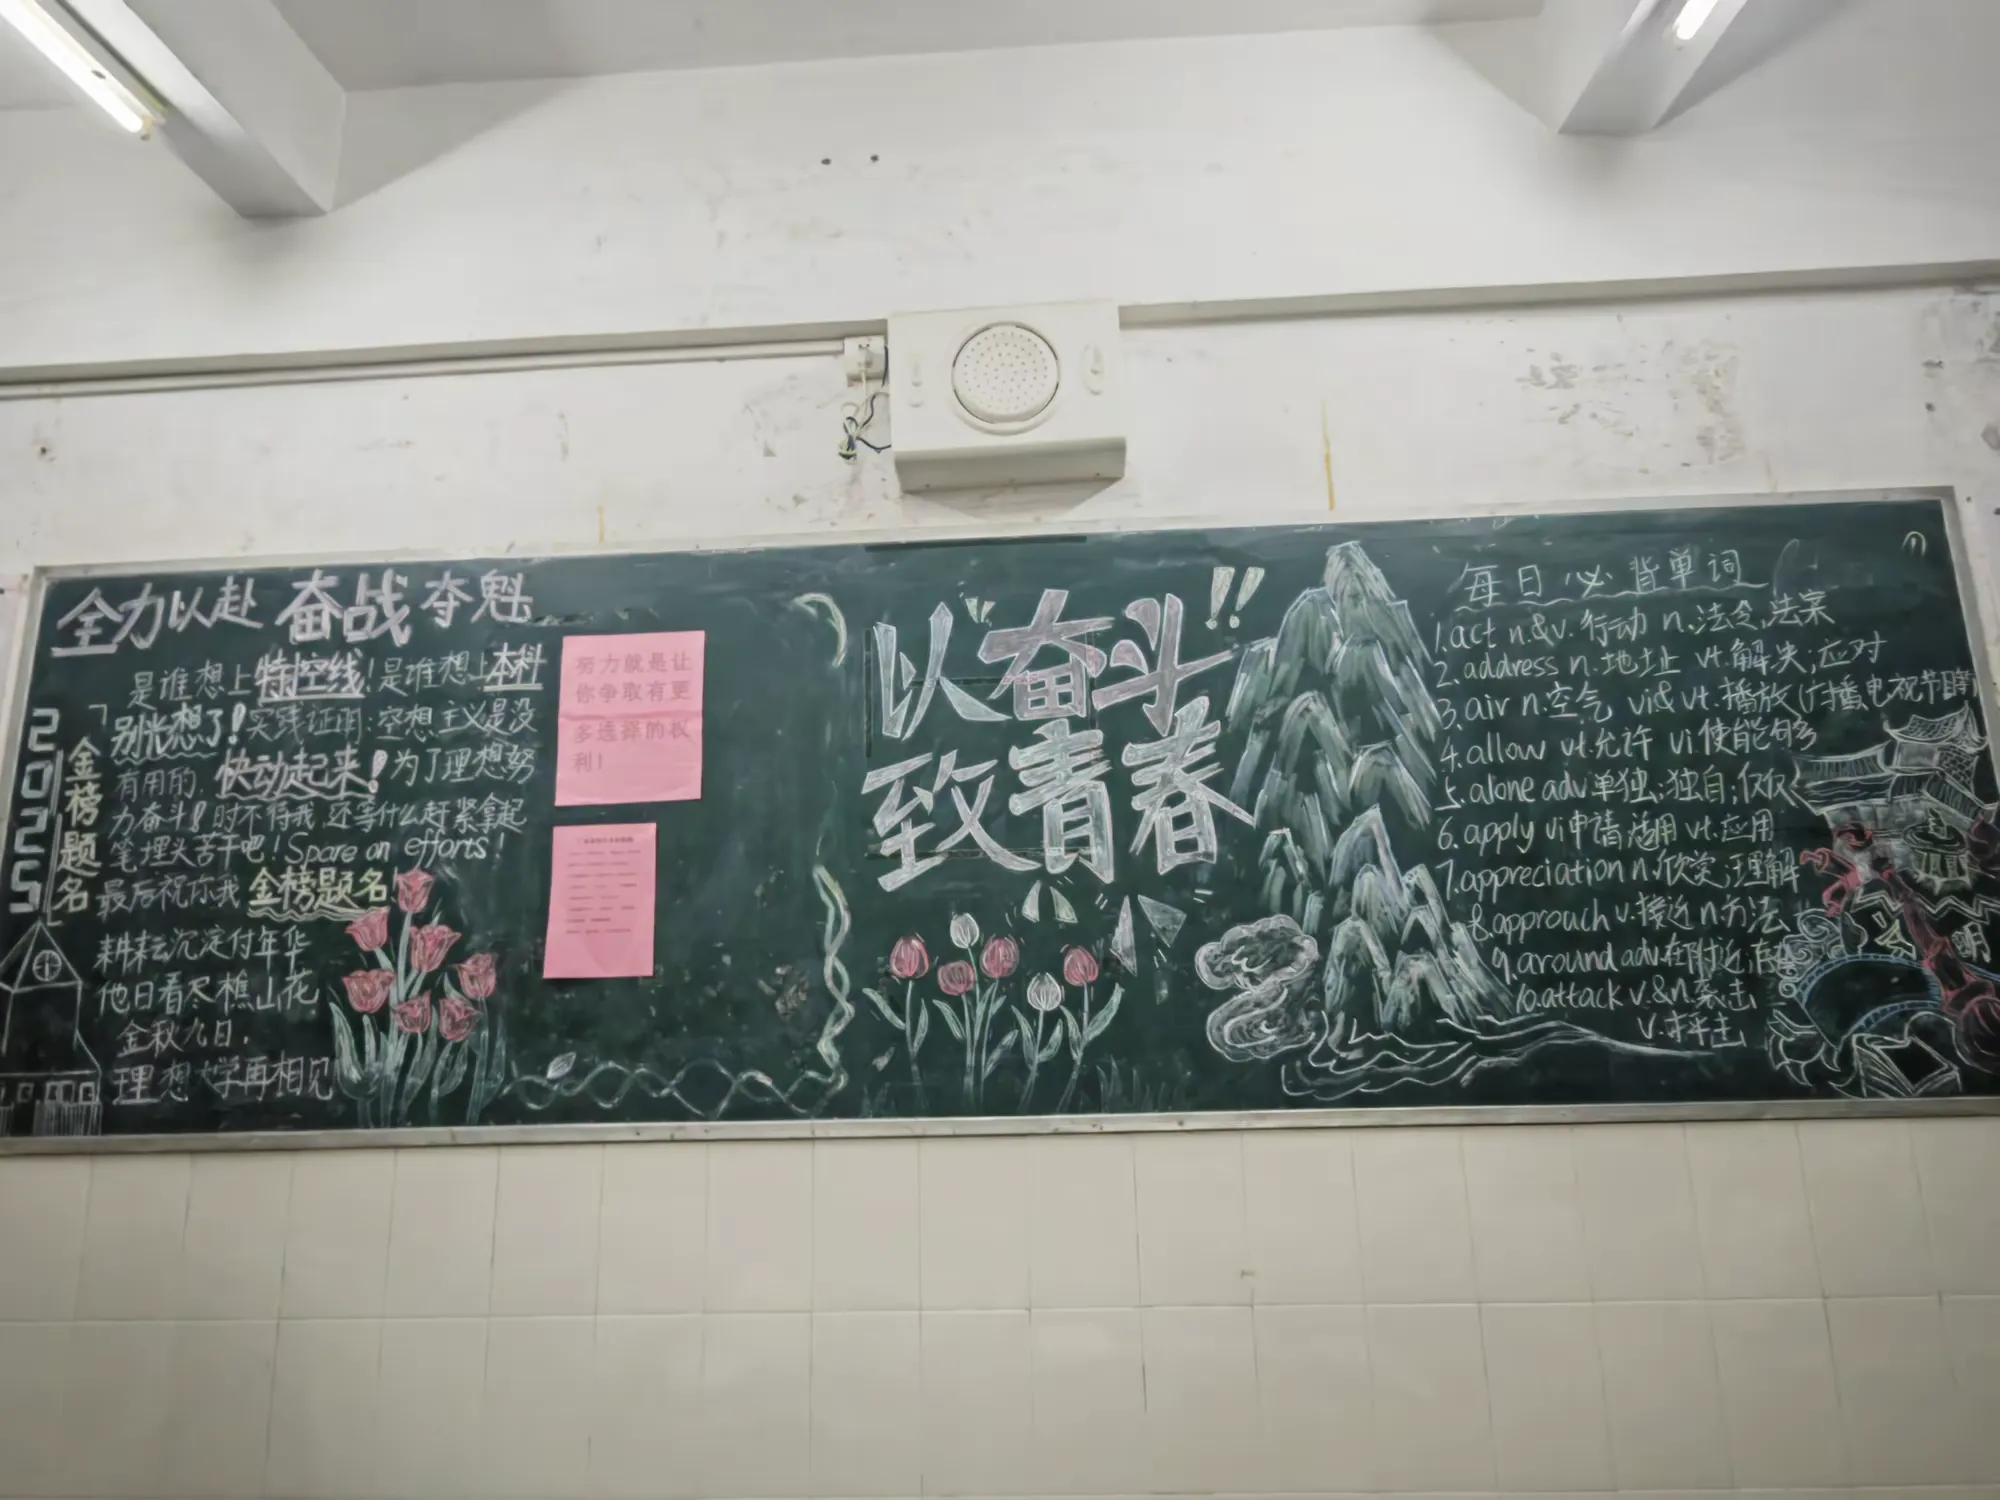 全力以赴 奋战夺魁
2025
金榜题名
是谁想上特控线!是谁想上本科
别光想了!实践证明:空想主义是没
有用的,快动起来!为了理想努
力奋斗!时不待我,还等什么赶紧拿起
笔埋头苦干吧!Spare on efforts!
最后祝你我金榜题名!
耕耘沉淀付年华
他日看尽樵山花
金秋九日,
理想大学再相见
努力就是让
你争取有更
多选择的权
利!
以奋斗!!
致青春
每日必背单词
1.act n.&v.行动 n.法令,法案
2.address n.地址 vt.解决;应对
3.air n.空气 vi&vt.播放(广播电视节目等
4.allow vt.允许 vi.使能够
5.alone adv.单独;独自;仅仅
6.apply vi申请 适用 vt.应用
7.appreciation n.欣赏;理解
8.approach v.接近 n.方法
9.around adv.在附近;
10.attack v.&n.袭击
v.抨击